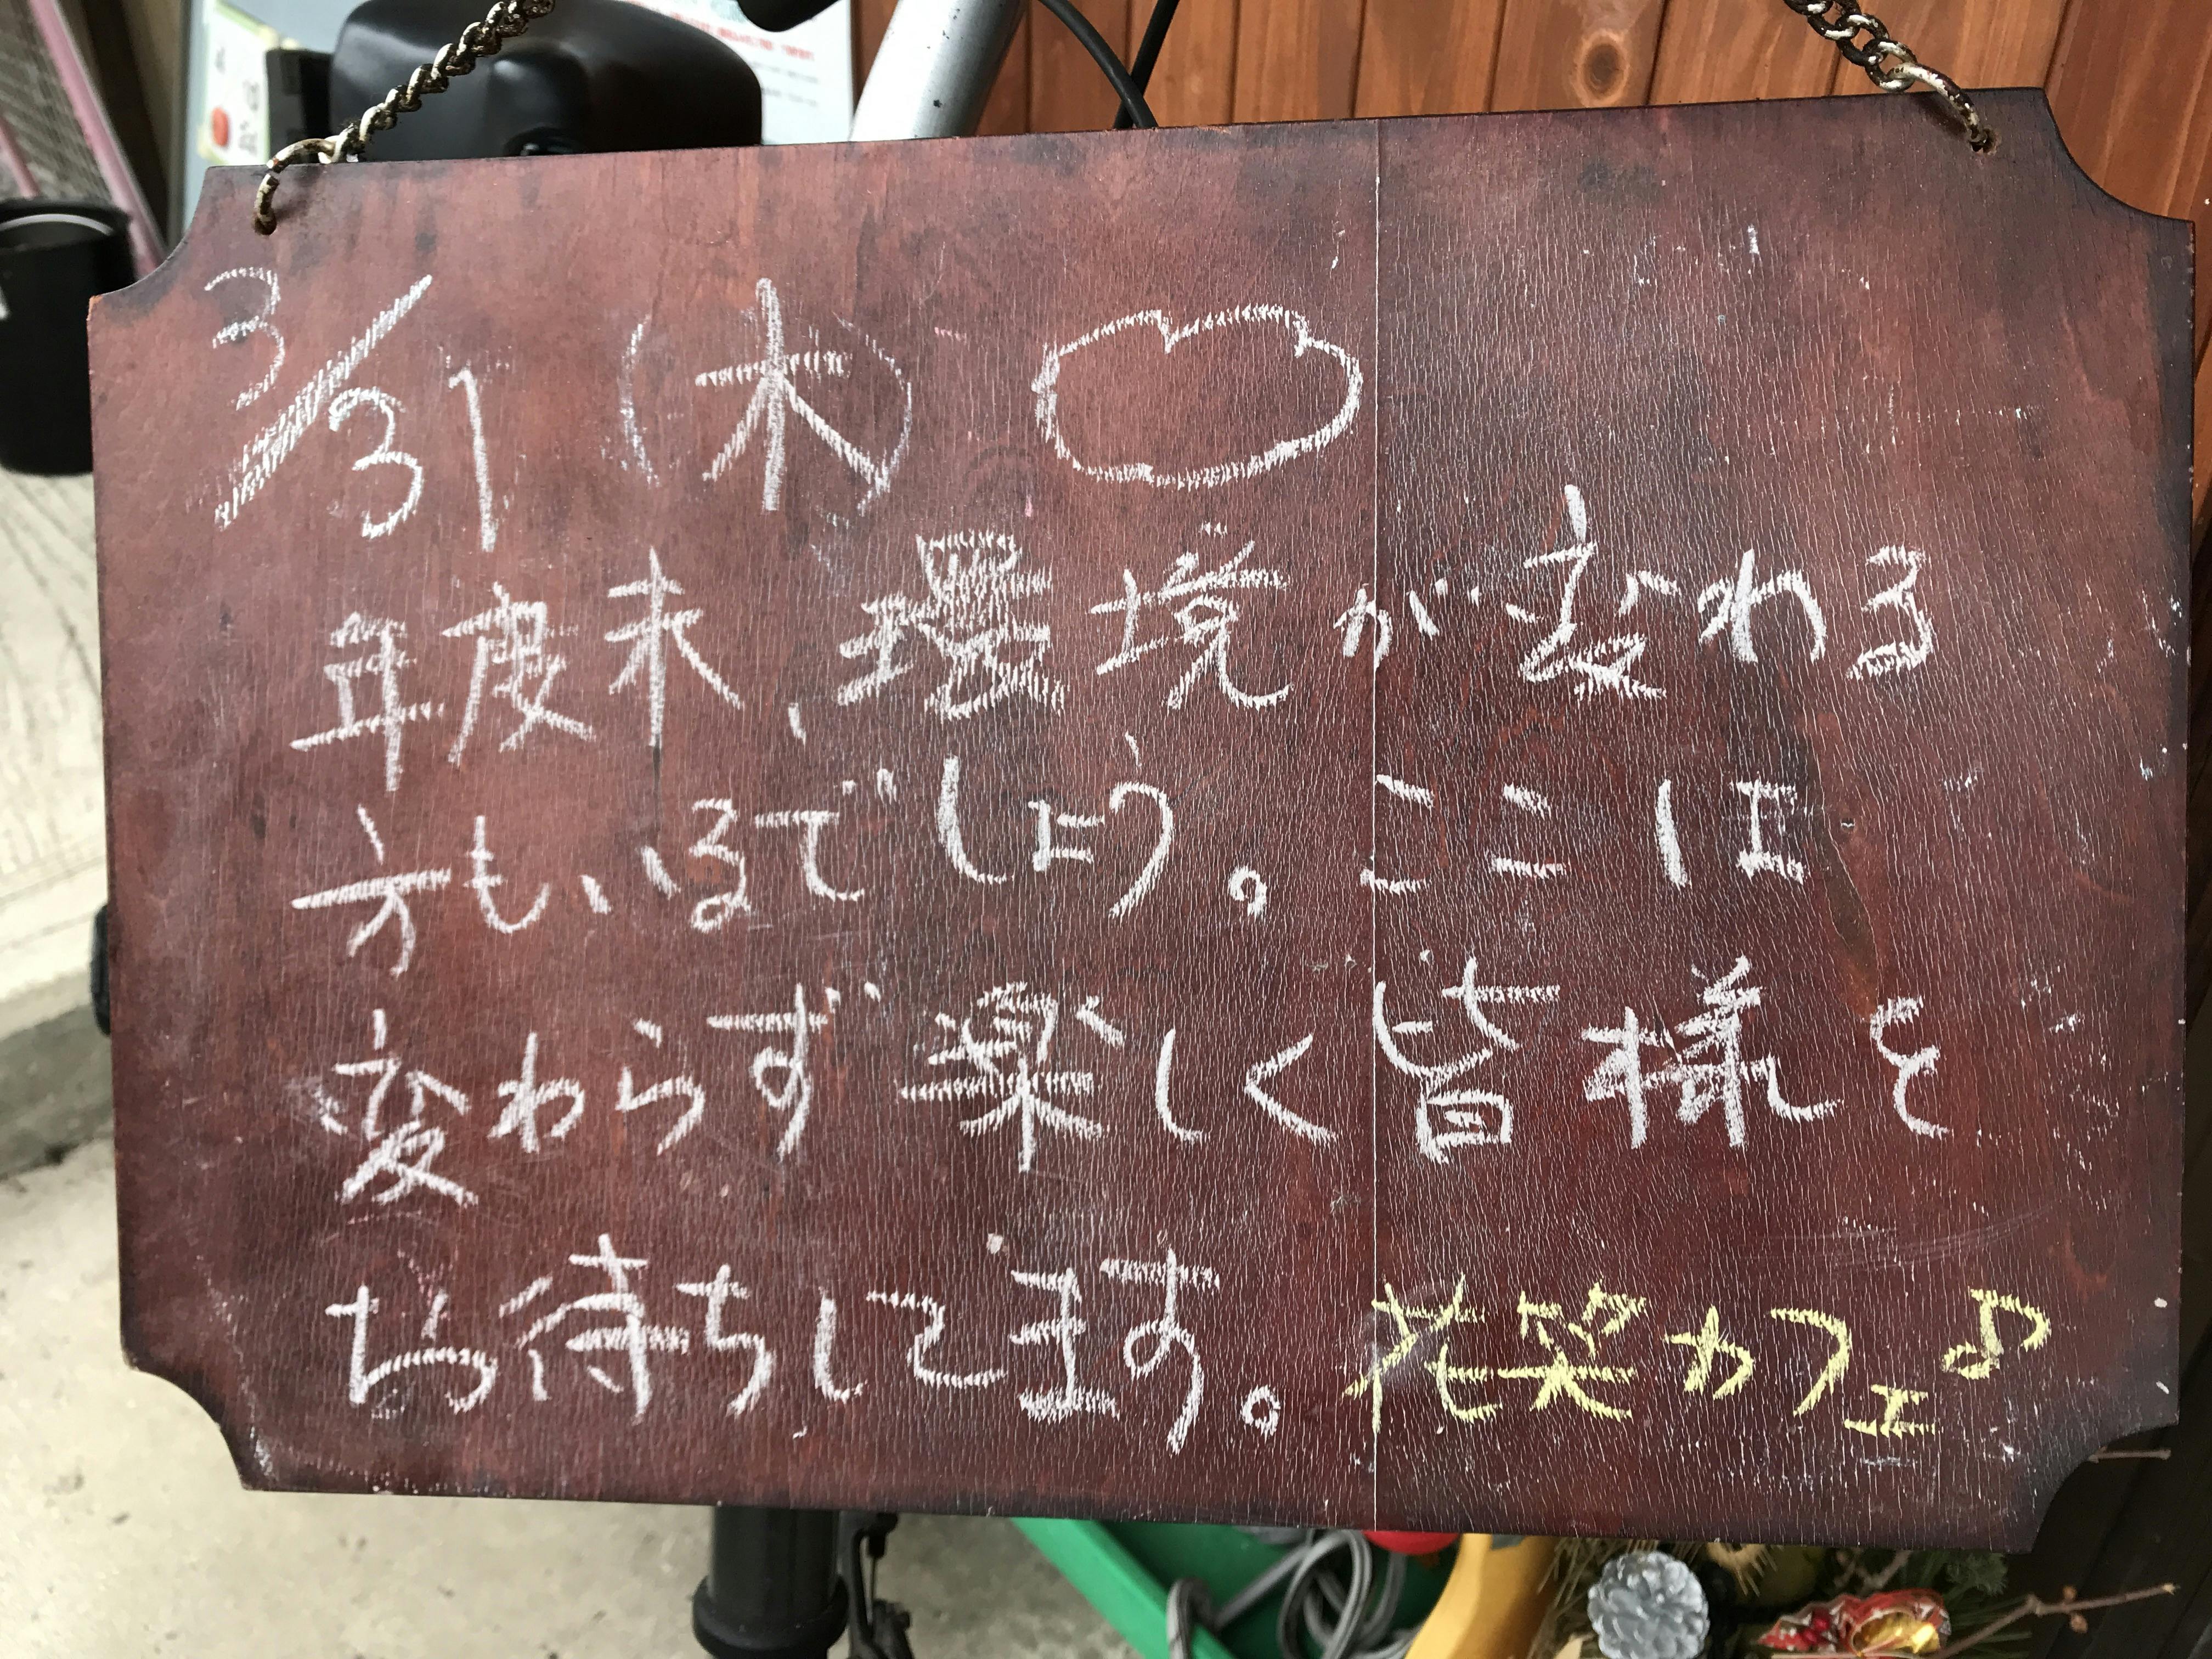 3/31（木）
年度末、環境が変わる
方もいるでしょう。ここは
変わらず楽しく皆様を
お待ちしてます。花笑カフェ♪